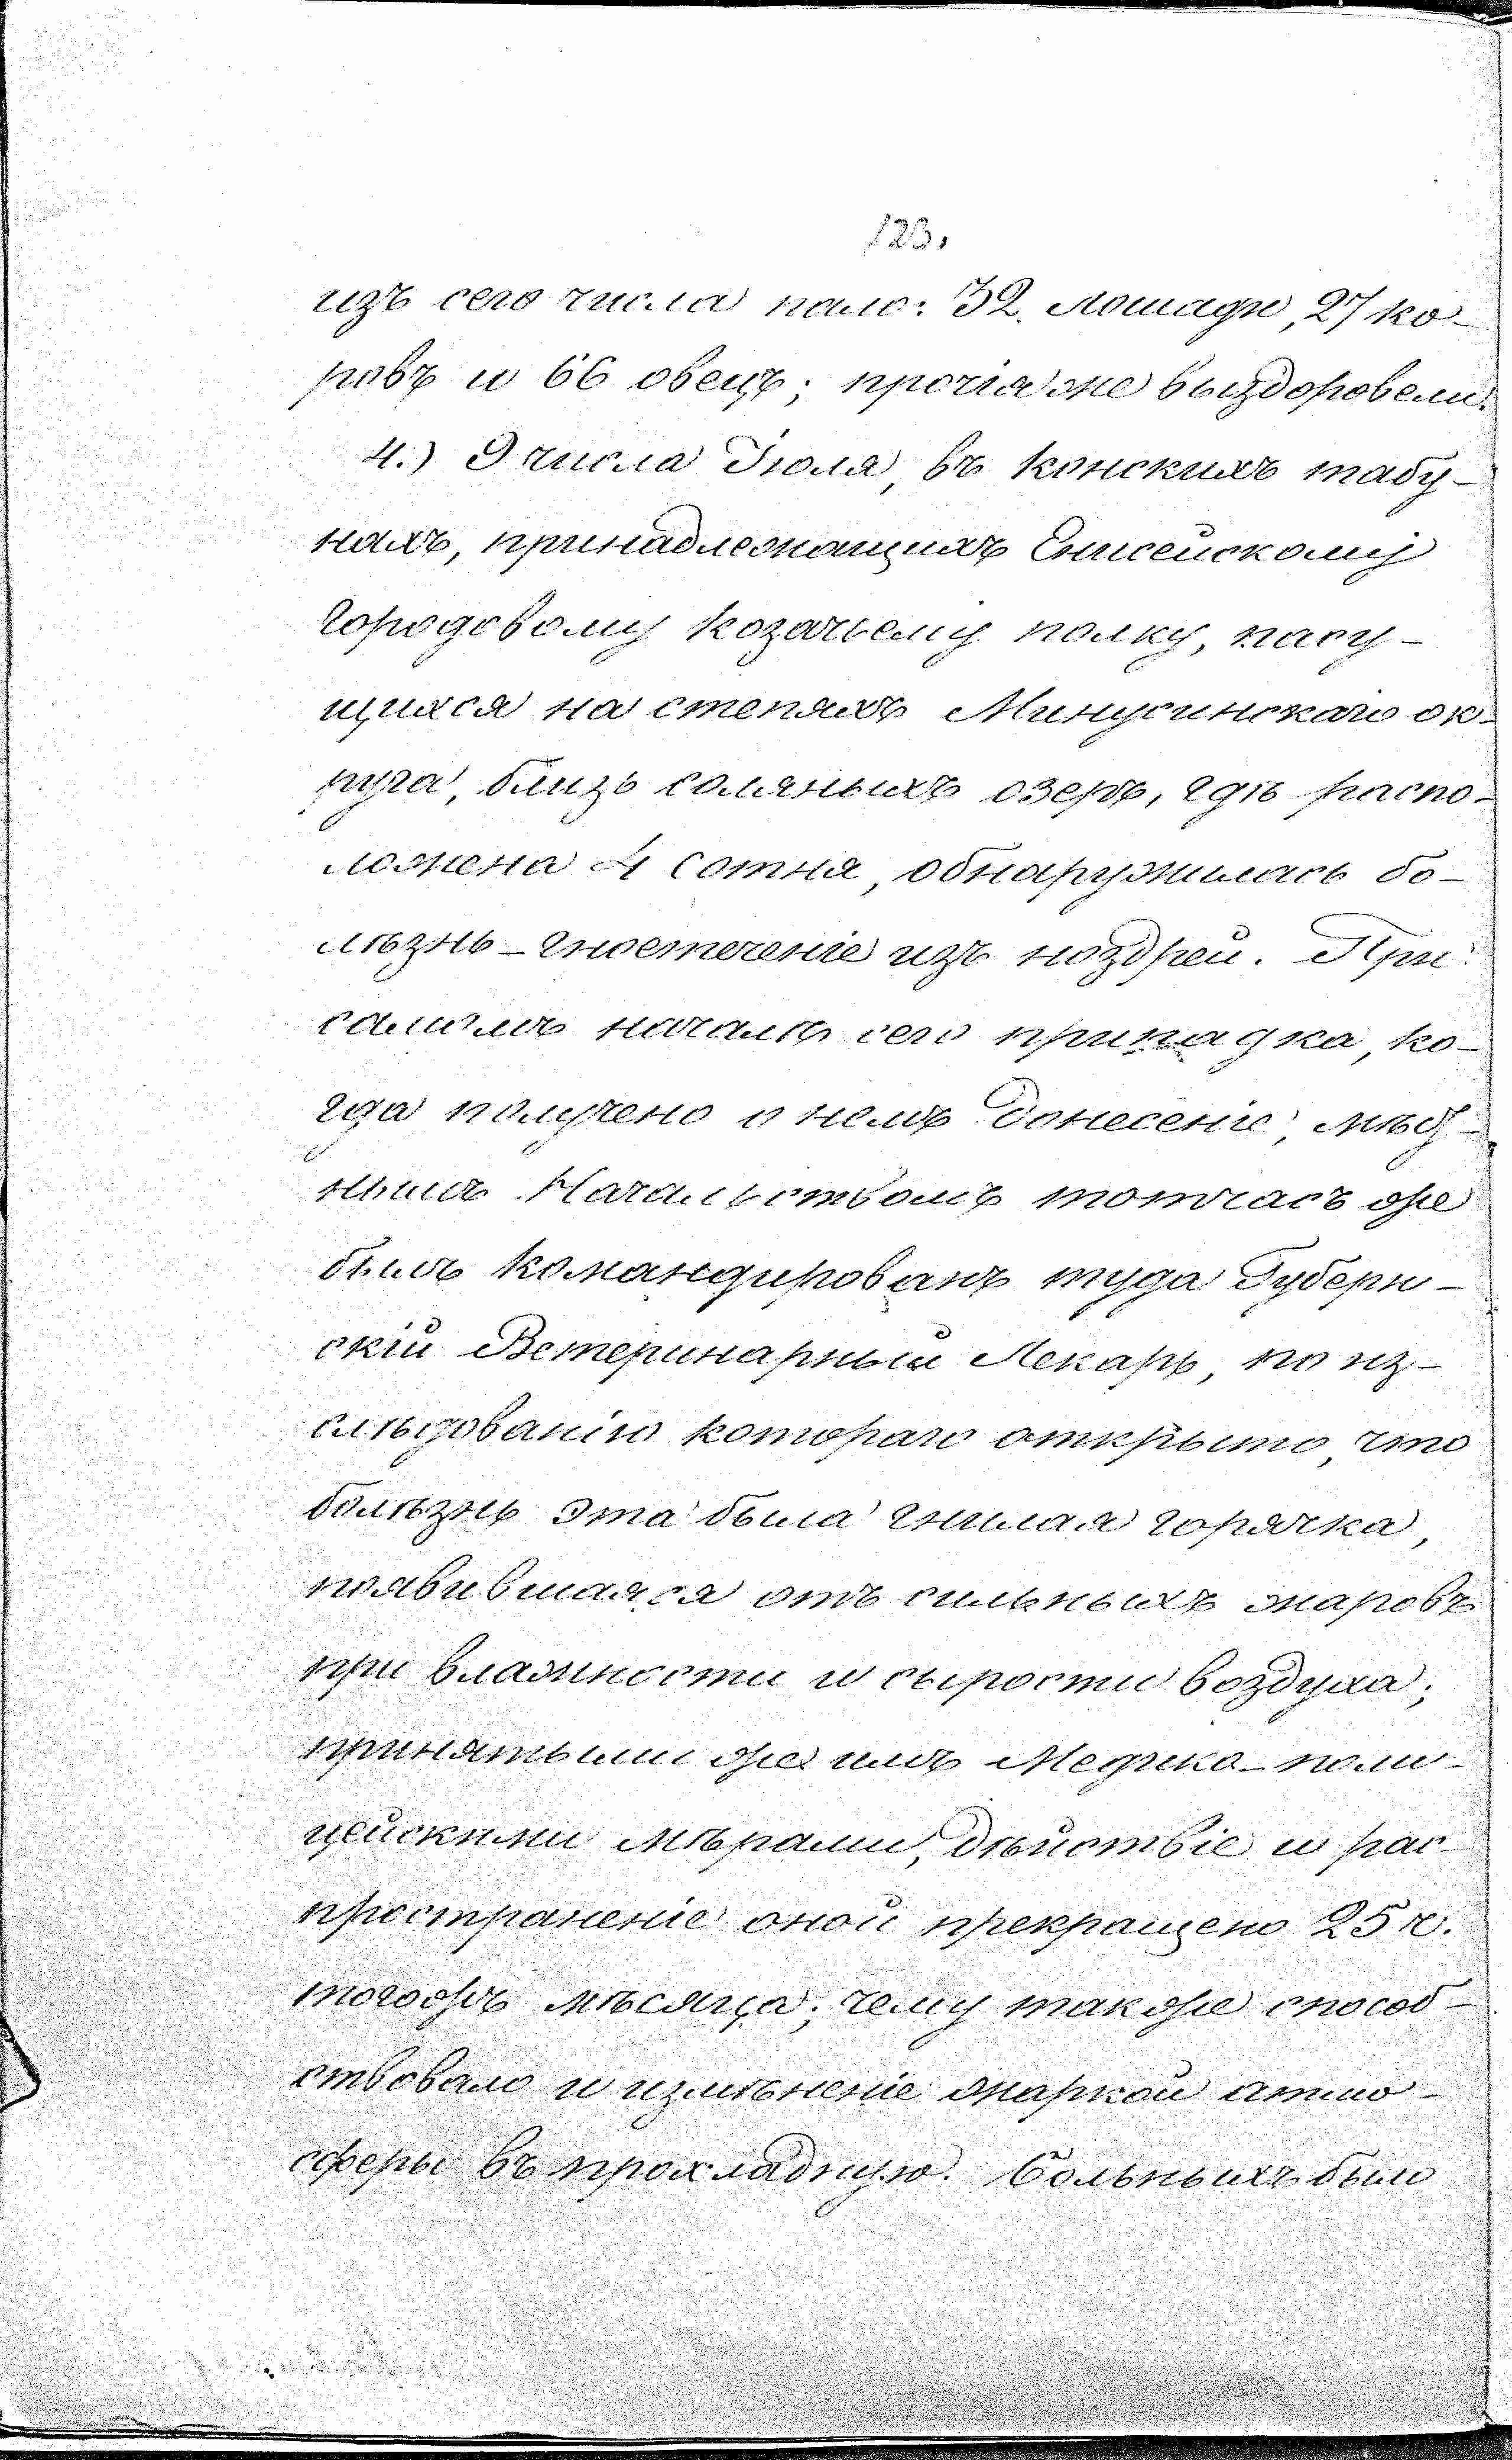 123.
изъ сего числа пало: 32. лошади, 27 ко-
ровъ и 66 овецъ; прочія же выздоровели.
4.) 9 числа Іюля, въ конскихъ табу-
нахъ, принадлежащихъ Енисейскому
городовому козачьему полку, пасу-
щихся на степяхъ Минусинскаго ок-
руга, близь соляныхъ озеръ, гдѣ распо-
ложена 4 сотня, обнаружилась бо-
лѣзнь - гноетеченіе изъ ноздрей. При
самомъ началѣ сего припадка, ко-
гда получено о немъ донесеніе, мѣст-
нымъ Начальствомъ тотчасъ же
былъ командированъ туда Губерн-
скій Ветеринарный Лекарь, по из-
слѣдованію котораго открыто, что
болѣзнь эта была гнилая горячка,
появившаяся отъ сильныхъ жаровъ
при влажности и сырости воздуха;
принятыми же имъ Медико-поли-
цейскими мѣрами, дѣйствіе и рас-
пространеніе оной прекращено 25 ч.
тогожъ мѣсяца; чему также способ-
ствовало и измѣненіе жаркой атмо-
сферы въ прохладную. Больныхъ было